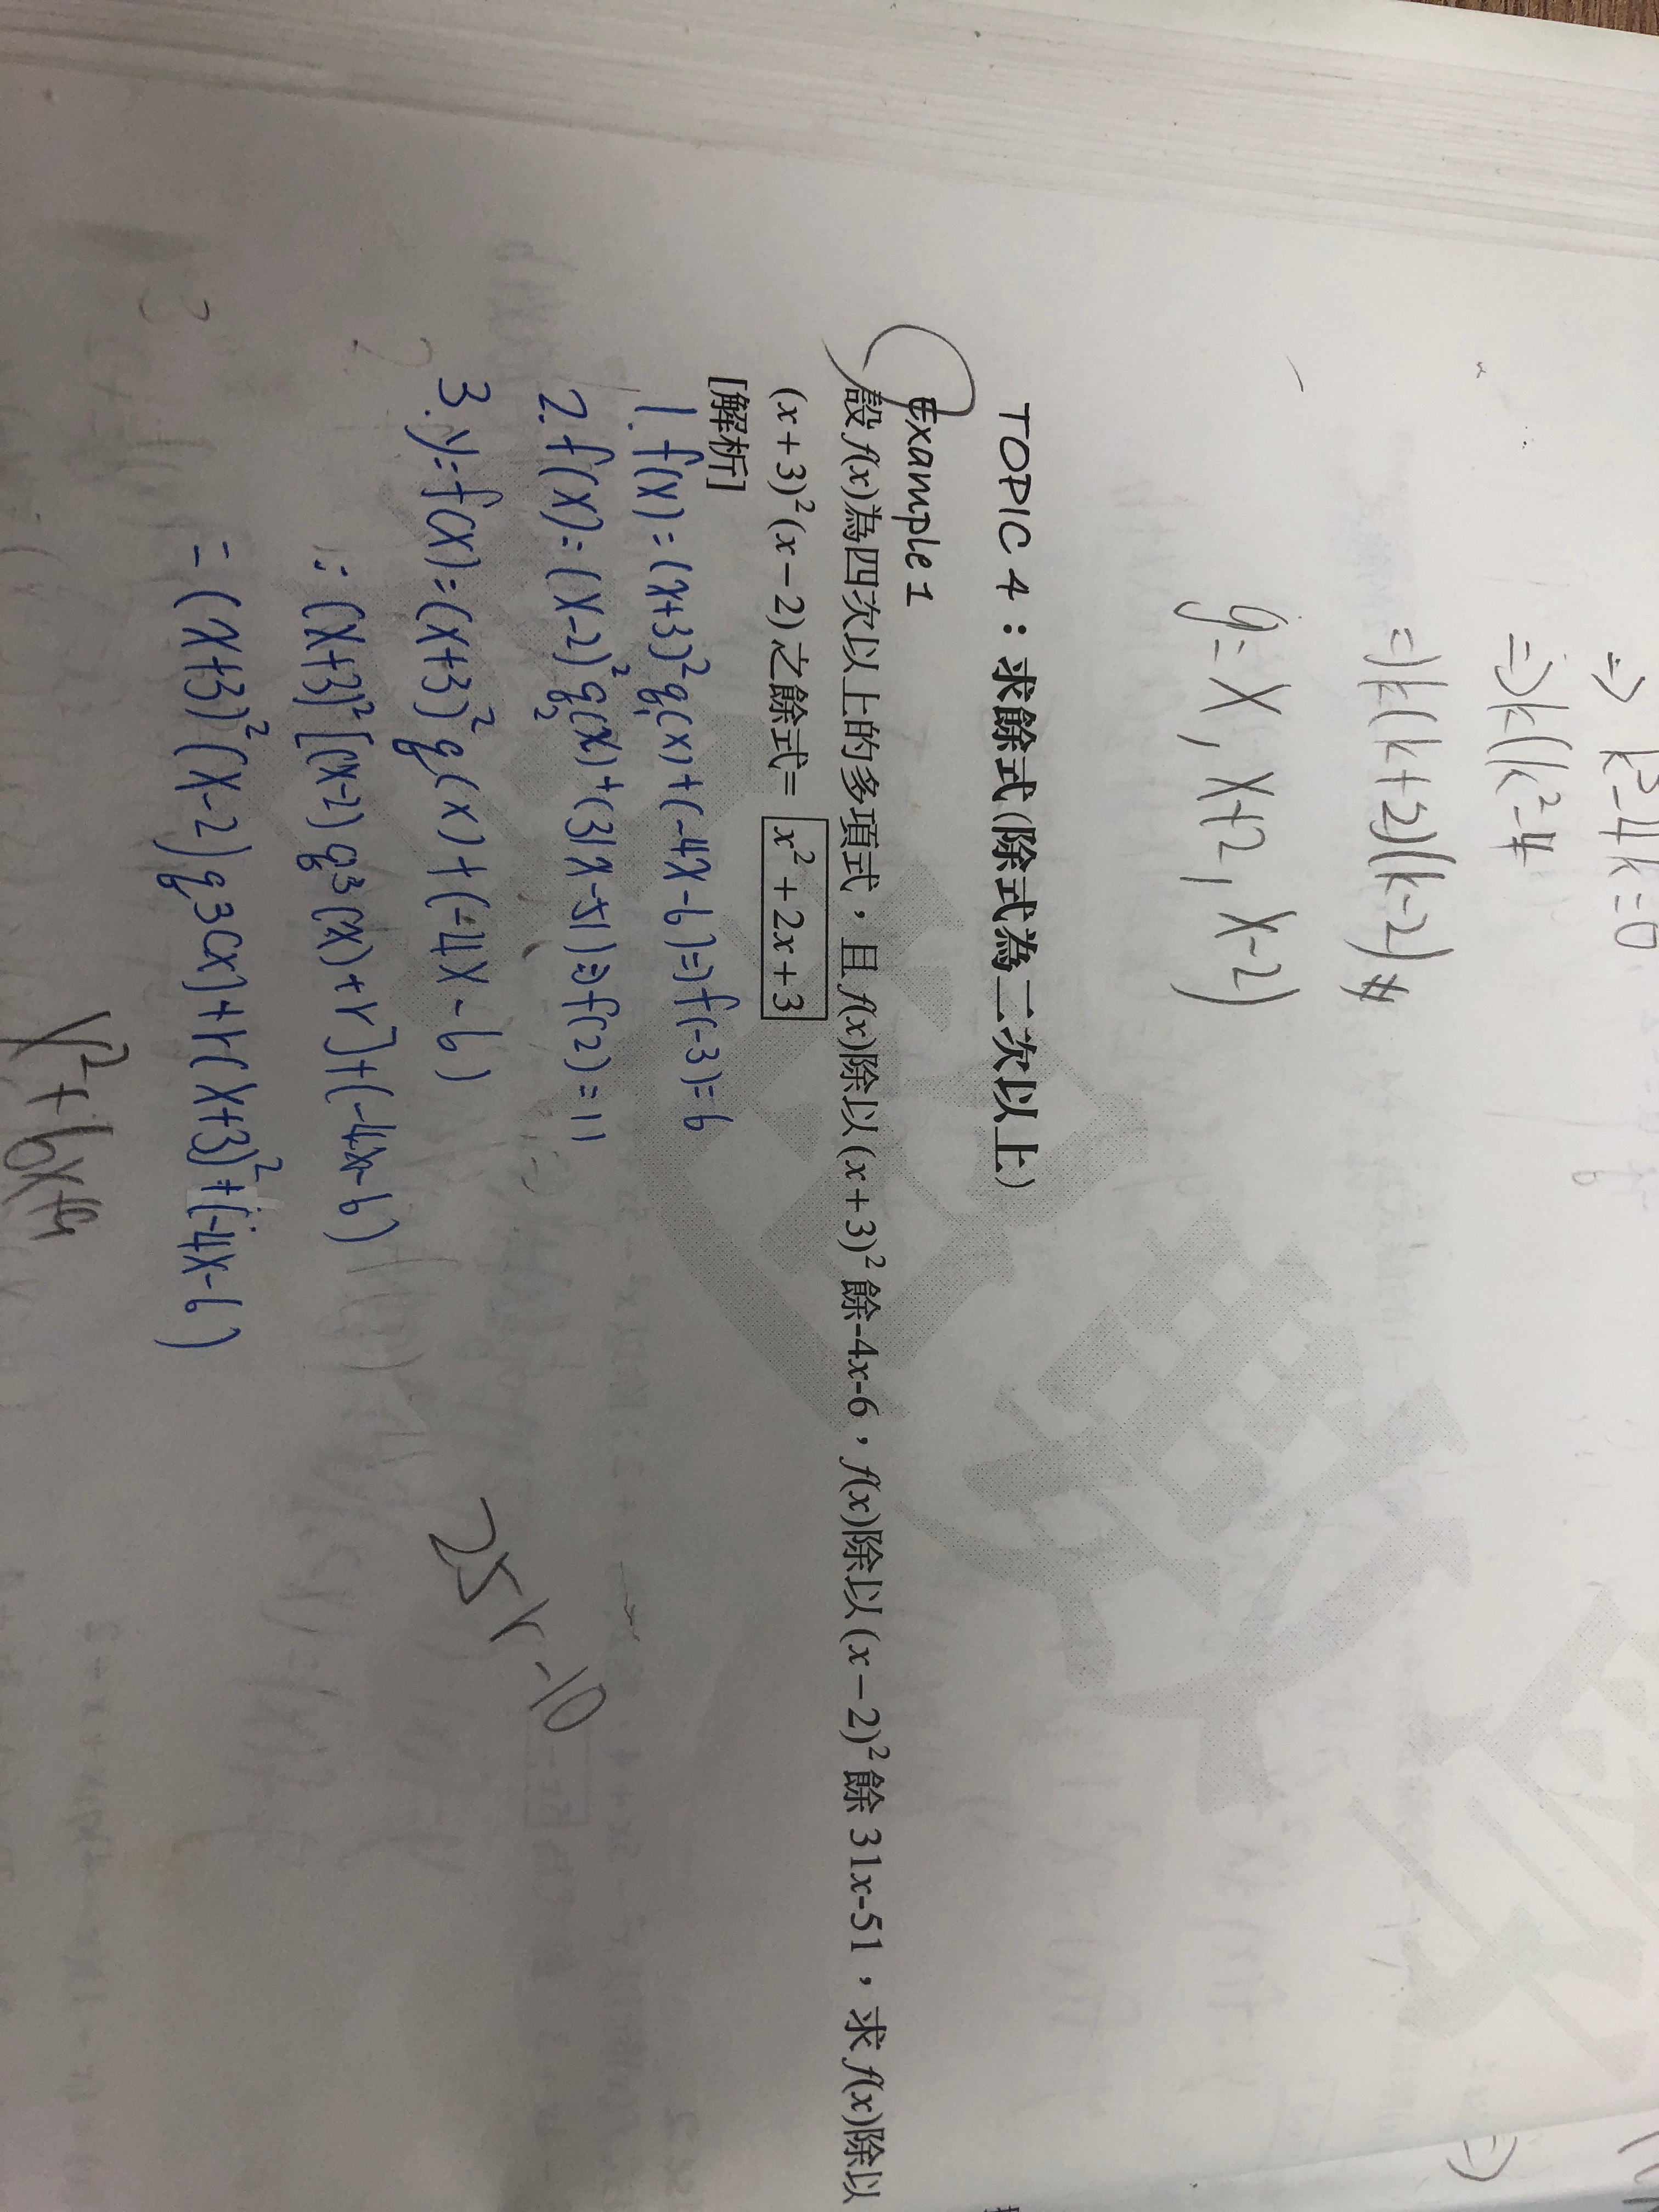 ⇒ k²-4k=0
⇒k(k²-4
=)k(k+2)(k-2)#
g=X, X+2, X-2)
TOPIC 4：求餘式(除式為二次以上)
Example 1
設 f(x)為四次以上的多項式，且 f(x)除以(x+3)² 餘-4x-6，f(x)除以(x−2)² 餘 31x-51，求 f(x)除以
(x+3)²(x−2)之餘式= x²+2x+3
[解析]
1. f(x)=(x+3)²q₁(x)+(-4x-6)=)f(-3)=6
2. f(x)=(x-2)²q₂(x)+(31x-51)⇒f(2)=11
3. y=f(x)=(x+3)²q(x)+(-4x-6)
∵(x+3)²[(x-2)q3(x)+r]+(-4x-6)
=(x+3)²(x-2)q3(x)+r(x+3)²+(-4x-6)
25r-10
x²+6x+9